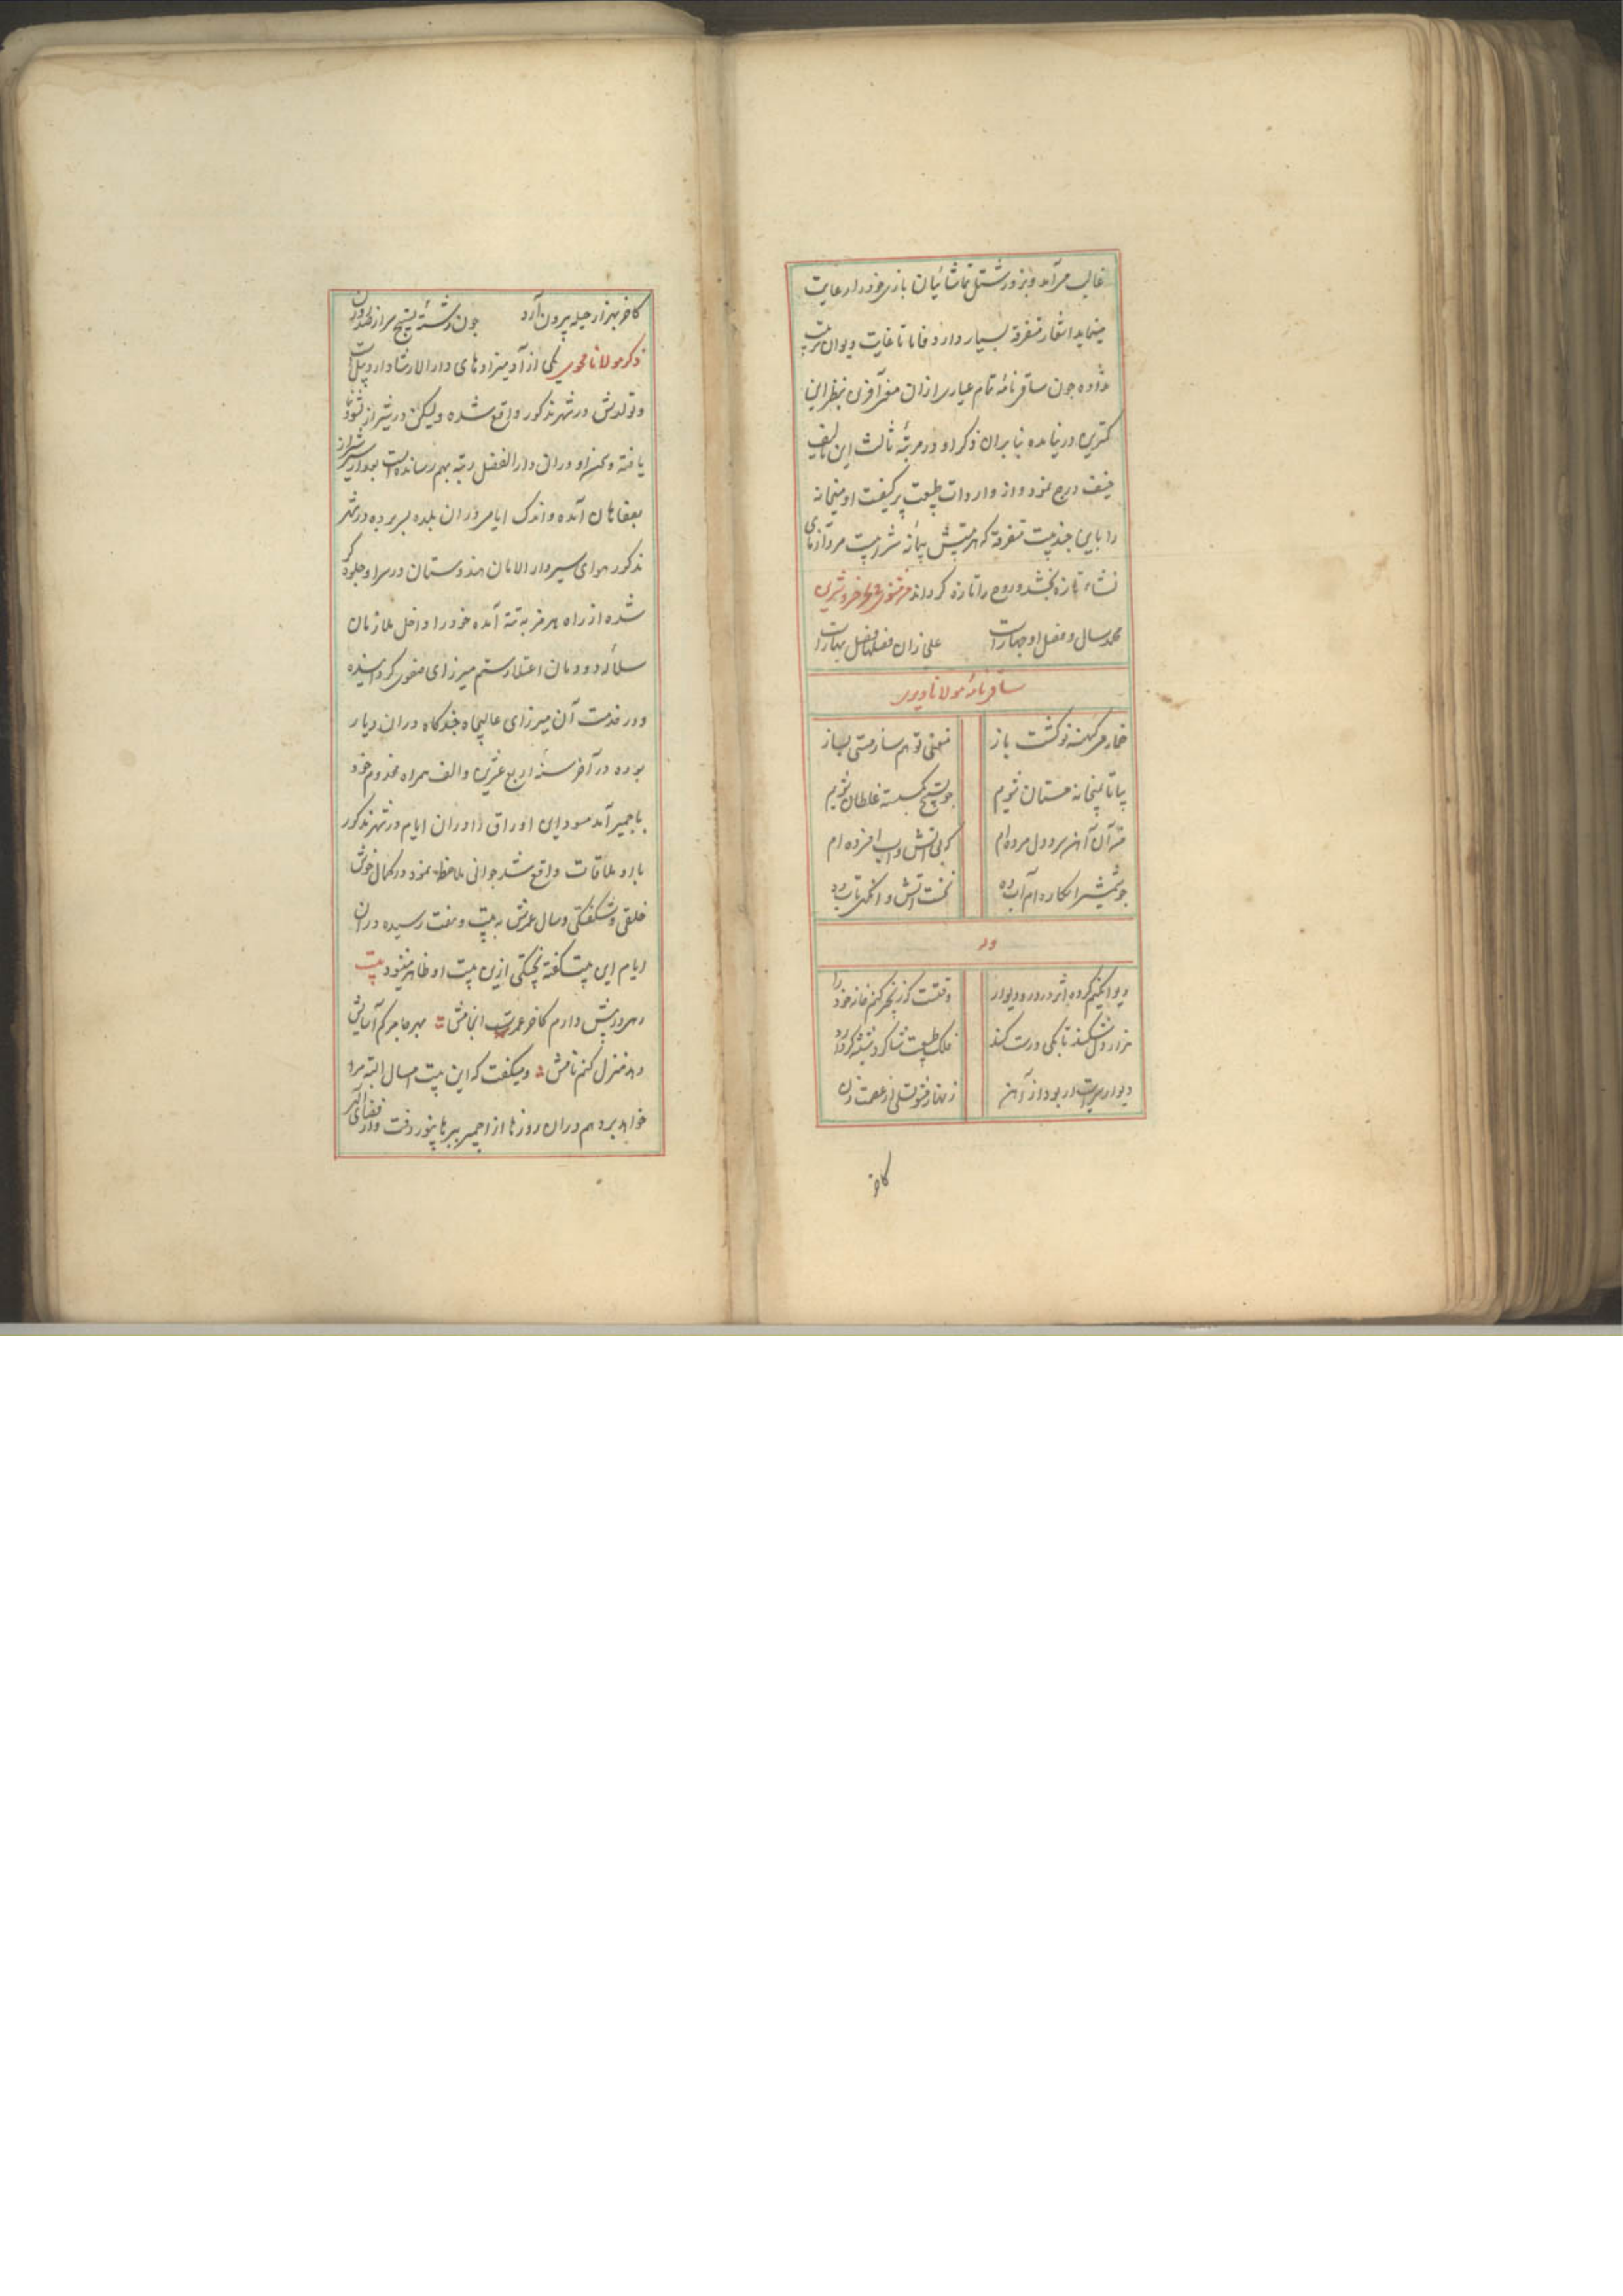 غالب می آید و بزور شتل تماشائیان بازی خود را رعایت
مینماید اشعار متفرقه بسیار دارد فاما تا غایت دیوان ترتیب
نداده چون ساقی نامه تمام عیاری ازان سخن آفرین بنظر این
کمترین در نیامده بنابران ذکر او در مرتبهٔ ثالث این تالیف
ضیف درج نمود و از واردات طبیعت پر کیفیت او میخانه
را باین چند بیت متفرقه که هر بیتش پیمانه شرابیست مرد آزمای
نشاء تازه بخشد و روح را تازه گرداند من مثنوی خسرو شیرین
محمد سال و فصل او چهار است علی زان فصلها فصل بهار است
ساقی نامه مولانا ویری
خمار می کهنه نو گشت باز
مغنی تو هم ساز مستی بساز
بیا تا بمیخانه مستان شویم
چو تسبیح بگسسته غلطان شویم
من آن آهن سرد دل مرده ام
که بی آتش و آب افسرده ام
چو شمشیر اینکاره ام آب ده
نخست آتش و آنگهی تاب ده
وله
دیوانگیم کرده اثر در در و دیوار
وقتست که زنجیر کنم خانه خود را
هزار دل شکند تا یکی درست کند
فلک طبیعت شاگرد شیشه گر دارد
دیوار سرایت ار بود از آهن
زنهار مشو تسلی از عصمت زن
کاخر
کاخر بهزار حیله بیرون آرد چون رشته تسبیح سر از صد روزن
ذکر مولانا محوی یکی از آدمیزادهای دار الارشاد اردبیل است
و تولدش در شهر مذکور واقع شده ولیکن در شیراز نشو و نما
یافته و سخن او دران دار الفضل رتبه بهم رسانده است بعد از شیراز
بصفاهان آمده و اندک ایامی دران بلده بسر برده در شهر
مذکور هوای سیر دار الامان هندوستان در سر او جلوه گر
شده از راه هرمز به تته آمده خود را داخل ملازمان
سلاله دودمان اعتلا رستم میرزای صفوی گردانیده
و در خدمت آن میرزای عالیجاه چندگاه دران دیار
بوده در آخر سنه اربع عشرین و الف همراه مخدوم خود
باجمیر آمد مسود این اوراق را دران ایام در شهر مذکور
با او ملاقات واقع شد جوانی ملاحظه نمود در کمال خوش
خلقی و شکفتگی و سال عمرش به بیست و هفت رسیده دران
ایام این بیت گفته پختگی ازین بیت او ظاهر میشود بیت
رهی در پیش دارم کاخر عمرست انجامش بهر جا می کنم آسایش
و هم منزل کنم نامش و میگفت که این بیت امسال البته مرا
خواهد برد هم دران روزها از اجمیر ببرهانپور رفت و از قضای الهی